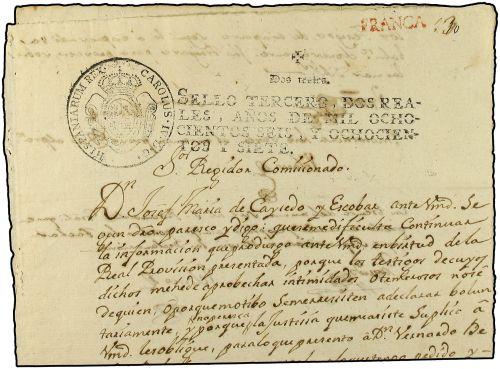 FRANCA
Dos reales.
CAROLUS IV D G
HISPANIARUM REX
SELLO TERCERO, DOS REA-
LES, AÑOS DE MIL OCHO-
CIENTOS SEIS, Y OCHOCIEN-
TOS Y SIETE.
S.or Regidor Comicionado.
D.n Josef Maria de Caviedo y Escobar ante Vmd. Se
gun dro paresco y digo: que me dificulta Continuar
la informacion que produsgo ante Vmd enbirtud de la
Real Provision presentada, porque los testigos de cuyos
dichos me he de aprobechar intimidados
de quien, o porque motibo Semerresisten adeclarar bolun
tariamente, y porque la Justisia que me asiste Suplico á
Vmd. les obligue, para lo que presento a D.n Vernardo De